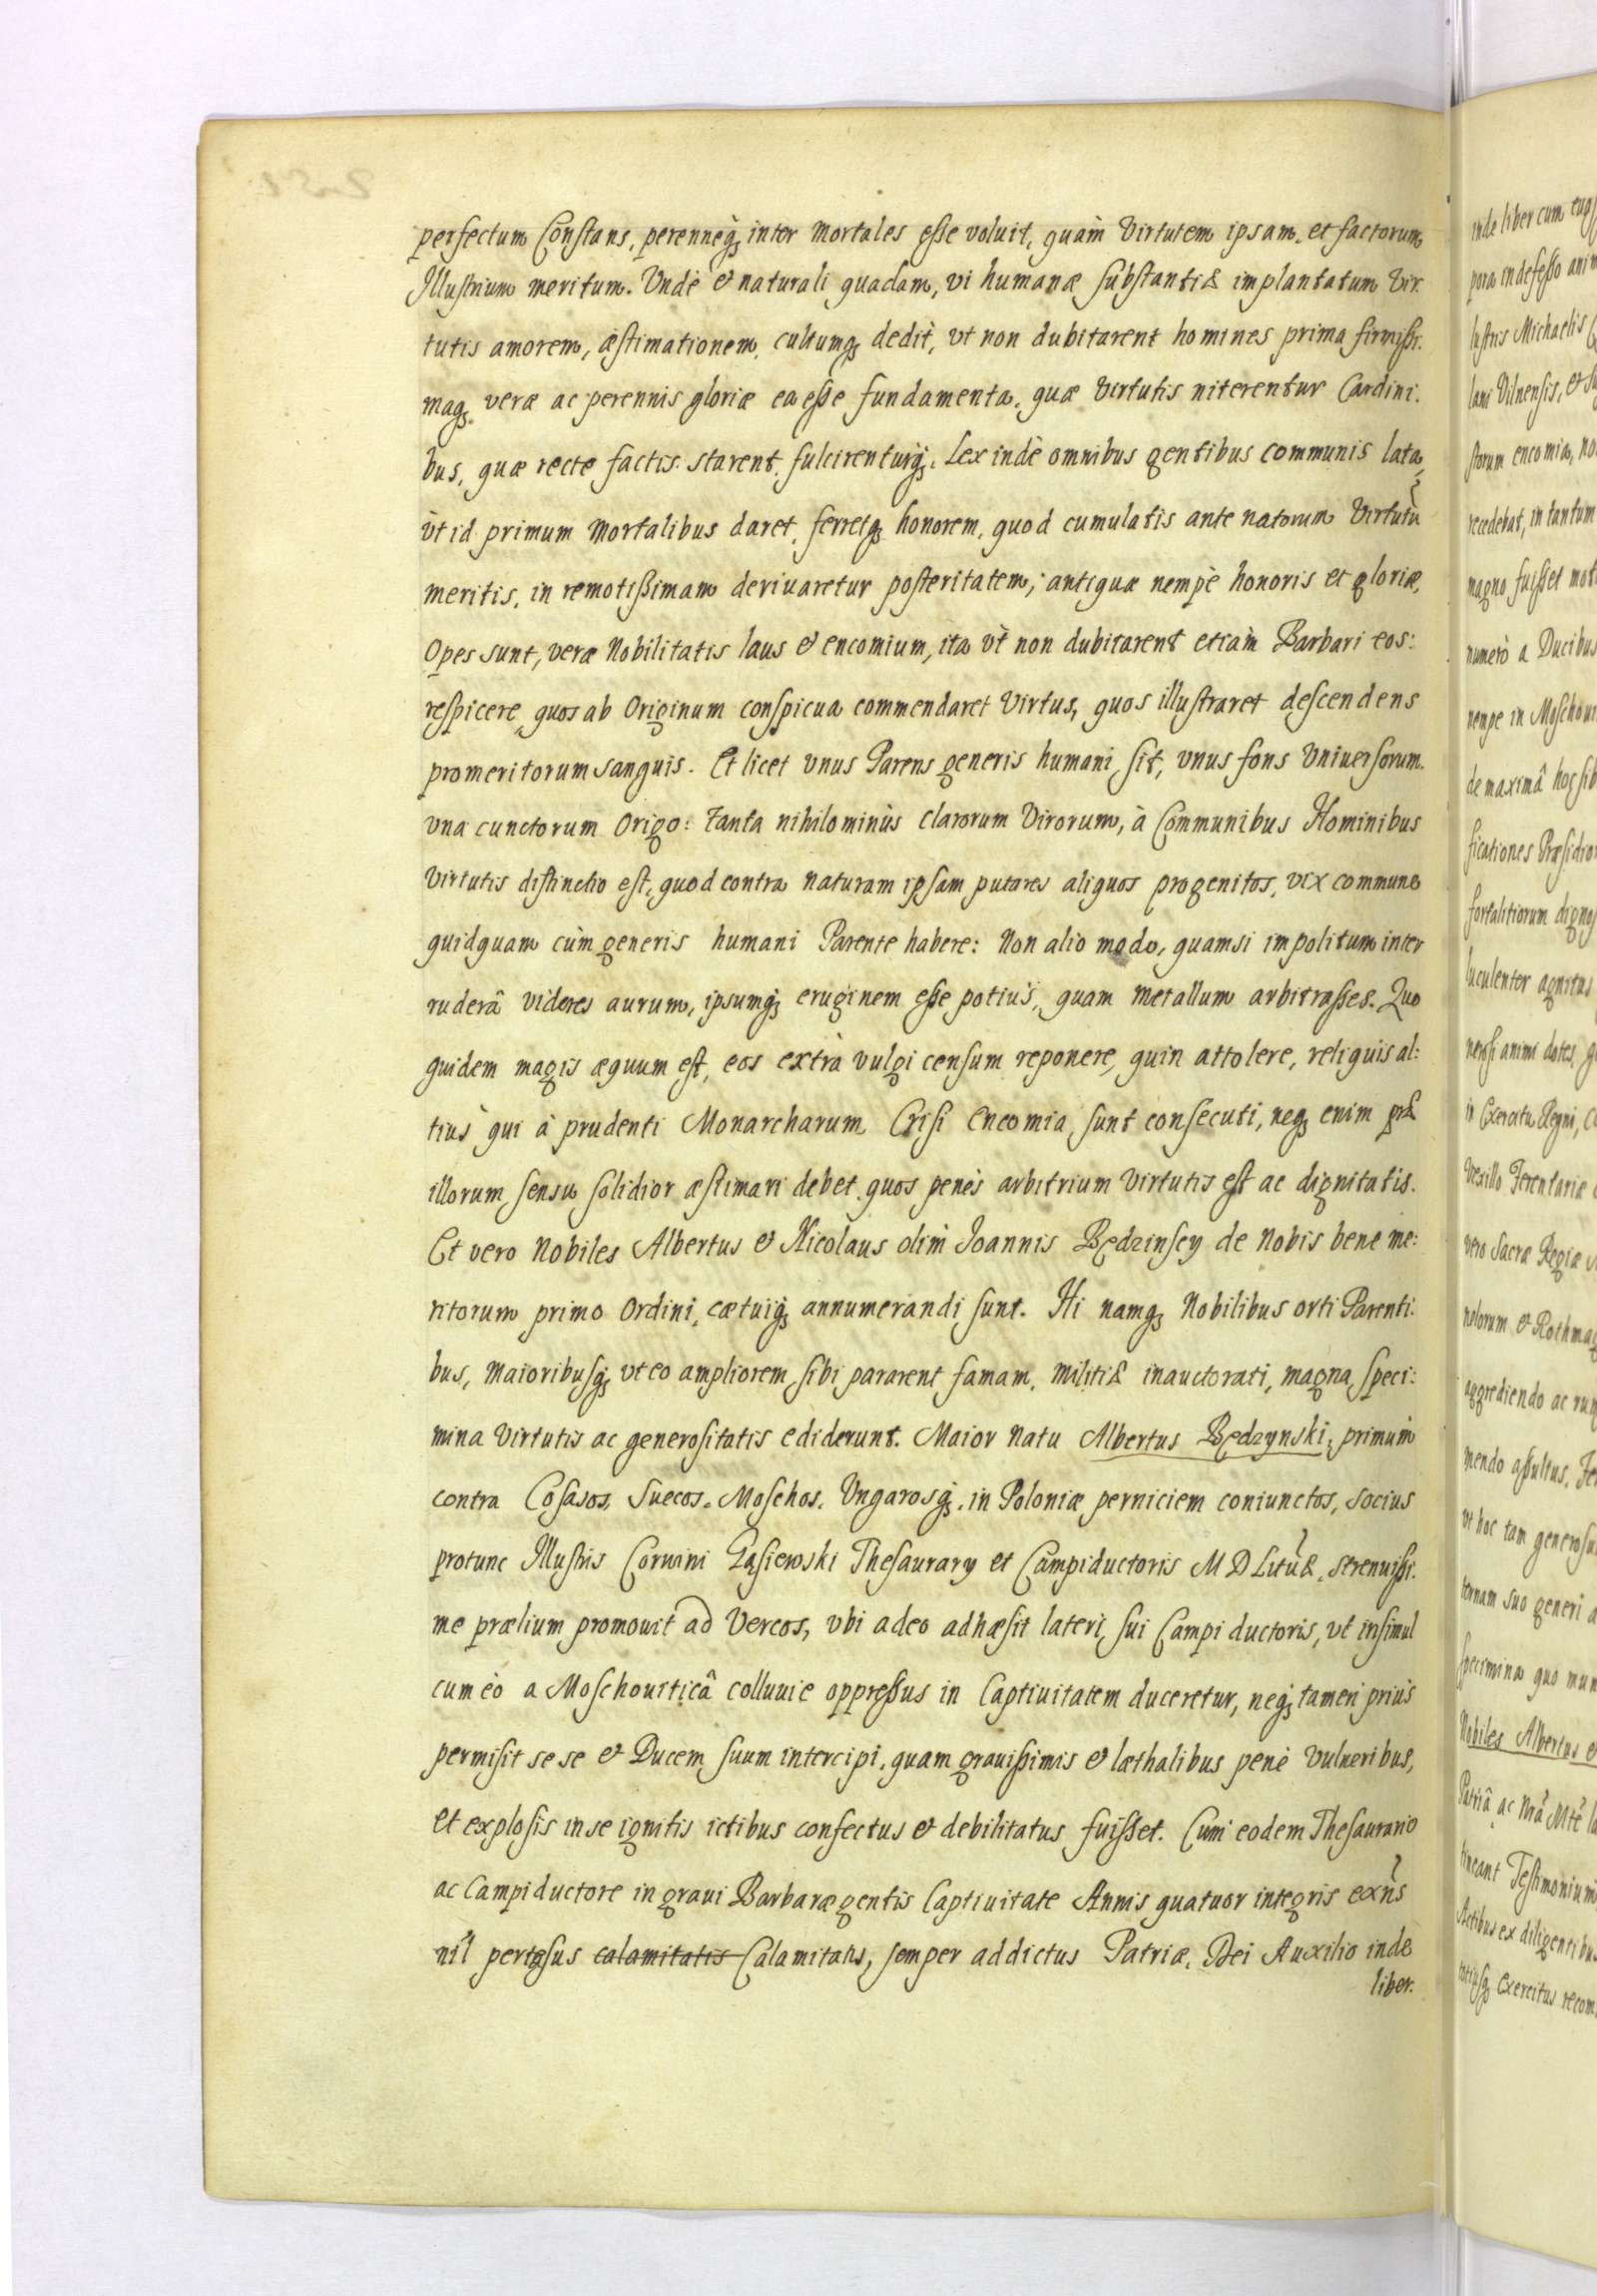 perfectum Constans, perenneq́; inter mortales eſse voluit, quàm Virtutem ipsam, et factorum
Illuſtrium meritum. Vndè & naturali quadam, vi humanæ ſubſtantiæ implantatum Vir.
tutis amorem, æſtimationem, cultumq; dedit, vt non dubitarent homines prima firmiſsi.
maq; veræ ac perennis gloriæ ea eſse fundamenta, quæ Virtutis niterentur Cardini.
bus, quæ recte factis starent, fulcirenturq́;. Lex indè omnibus gentibus communis lata,
vt id primum mortalibus daret, ferretq; honorem, quod cumulatis ante natorum Virtutũ
meritis, in remotiſsimam deriuaretur poſteritatem; antiquæ nempè honoris et gloriæ,
Opes sunt, veræ Nobilitatis laus & encomium, ita vt non dubitarent etiàm Barbari eos:
reſpicere, quos ab Originum conſpicua commendaret Virtus, quos illuſtraret deſcendens
promeritorum sanguis. Et licet vnus Parens generis humani ſit, vnus fons Vniuerſorum.
vna cunctorum Origo: tanta nihilominùs clarorum Virorum, à Communibus Hominibus
Virtutis diſtinctio eſt, quod contra naturam ipſam putares aliquos progenitos, vix commune
quidquam cùm generis humani Parente habere: Non alio modo, quamsi impolitum inter
ruderâ videres aurum, ipsumq́; eruginem eſse potiùs, quam metallum arbitraſses. Quo
quidem magis æquum eſt, eos extrà vulgi cenſum reponere, quin attolere, reliquis al:
tiùs qui à prudenti Monarcharum Crisi encomia ſunt conſecuti, neq; enim præ
illorum ſensu ſolidior æſtimari debet, quos penès arbitrium Virtutis eſt ac dignitatis.
Et vero Nobiles Albertus & Nicolaus olim Ioannis Będzinſcy de Nobis bene me:
ritorum primo Ordini, cætuiq́; annumerandi ſunt. Hi namq; Nobilibus orti Parenti:
bus, maioribuſq́; vt eo ampliorem ſibi pararent famam, militiæ inauctorati, magna ſpeci:
mina Virtutis ac generoſitatis ediderunt. Maior natu Albertus Będzynski, primùm
contra Coſasos, Suecos, Moſchos, Vngarosq́;, in Poloniæ perniciem coniunctos, socius
protunc Illuſtris Corvini Gąsiewski Theſaurary et Campiductoris M D Lituæ, strenuiſsi.
me prælium promouit ad Vercos, vbi adeo adhæſit lateri ſui Campi ductoris, vt inſimul
cum eò a Moſchouiticâ colluuie oppreſsus in Captiuitatem duceretur, neq́; tamen priùs
permiſit se se & Ducem ſuum intercipi, quam grauiſsimis & læthalibus penè Vulneribus,
et exploſis in se ignitis ictibus confectus & debilitatus fuiſset. Cum eodem Theſaurario
ac Campiductore in graui Barbaræ gentis Captiuitate Annis quatuor integris exñs
nil pertæsus calamitatis Calamitatis, semper addictus Patriæ, Dei Auxilio inde
liber.